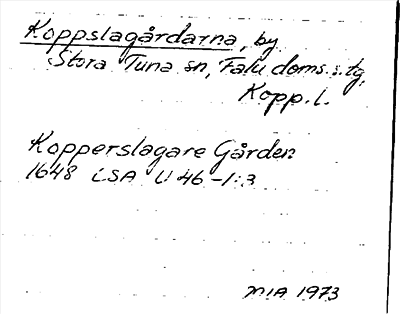 Koppslagårdarna, by
Stora Tuna sn, Falu doms. tg,
Kopp. l.
Kopperslagare Gården
1648 LSA U 46-1:3
MIA 1973